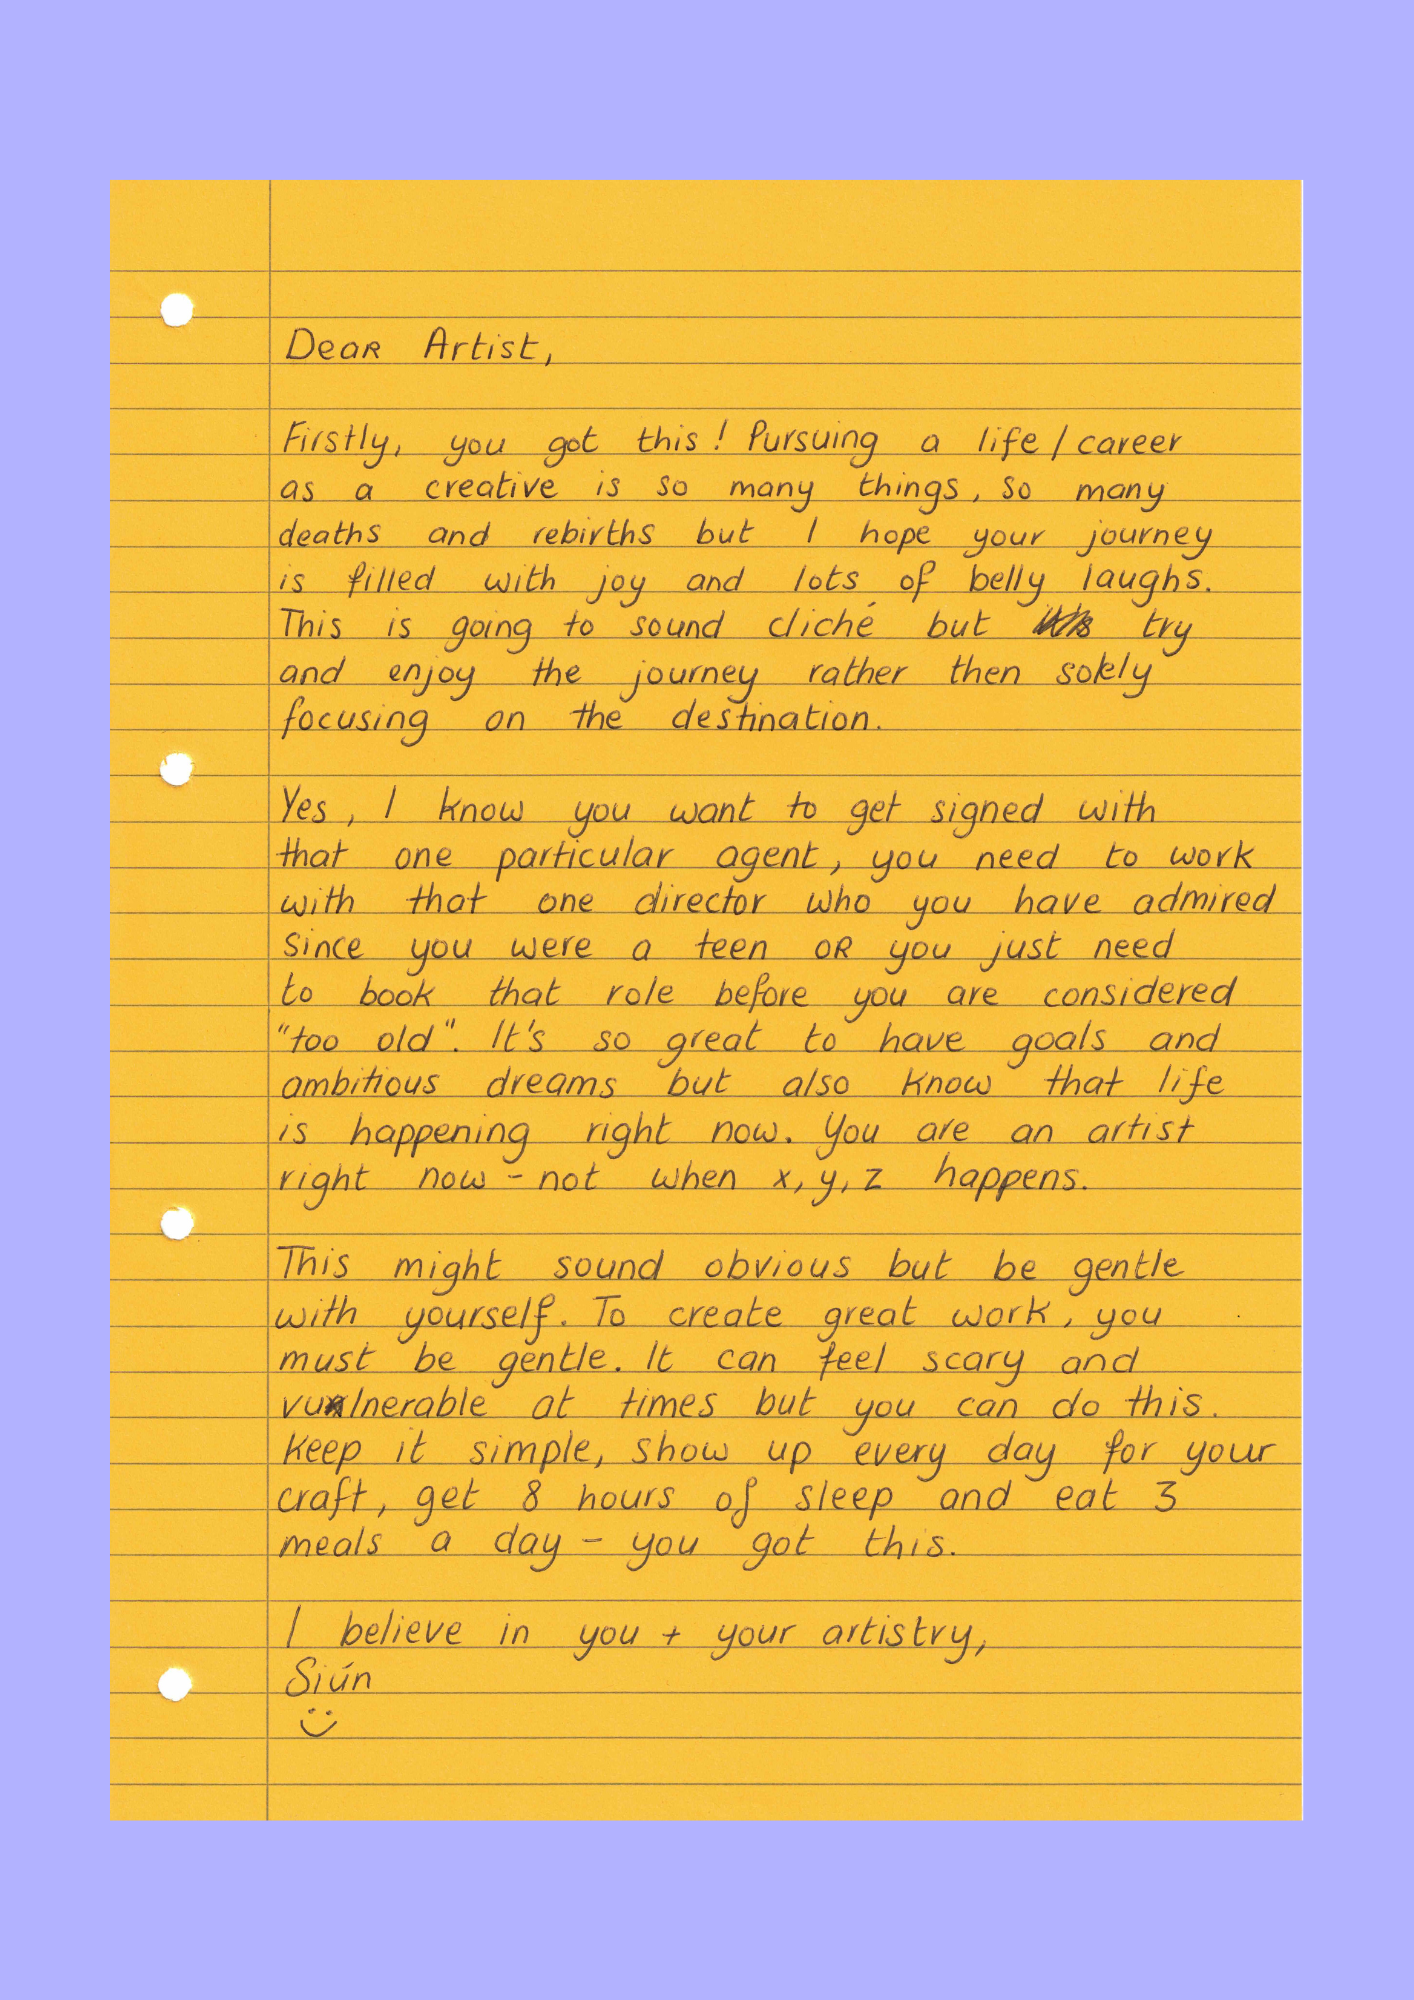 Dear Artist,
Firstly, you got this! Pursuing a life/career
as a creative is so many things, so many
deaths and rebirths but I hope your journey
is filled with joy and lots of belly laughs.
This is going to sound cliché but try
and enjoy the journey rather then solely
focusing on the destination.
Yes, I know you want to get signed with
that one particular agent, you need to work
with that one director who you have admired
since you were a teen OR you just need
to book that role before you are considered
"too old". It's so great to have goals and
ambitious dreams but also know that life
is happening right now. You are an artist
right now - not when x, y, z happens.
This might sound obvious but be gentle
with yourself. To create great work, you
must be gentle. It can feel scary and
vulnerable at times but you can do this.
Keep it simple, show up every day for your
craft, get 8 hours of sleep and eat 3
meals a day - you got this.
I believe in you + your artistry,
Siún